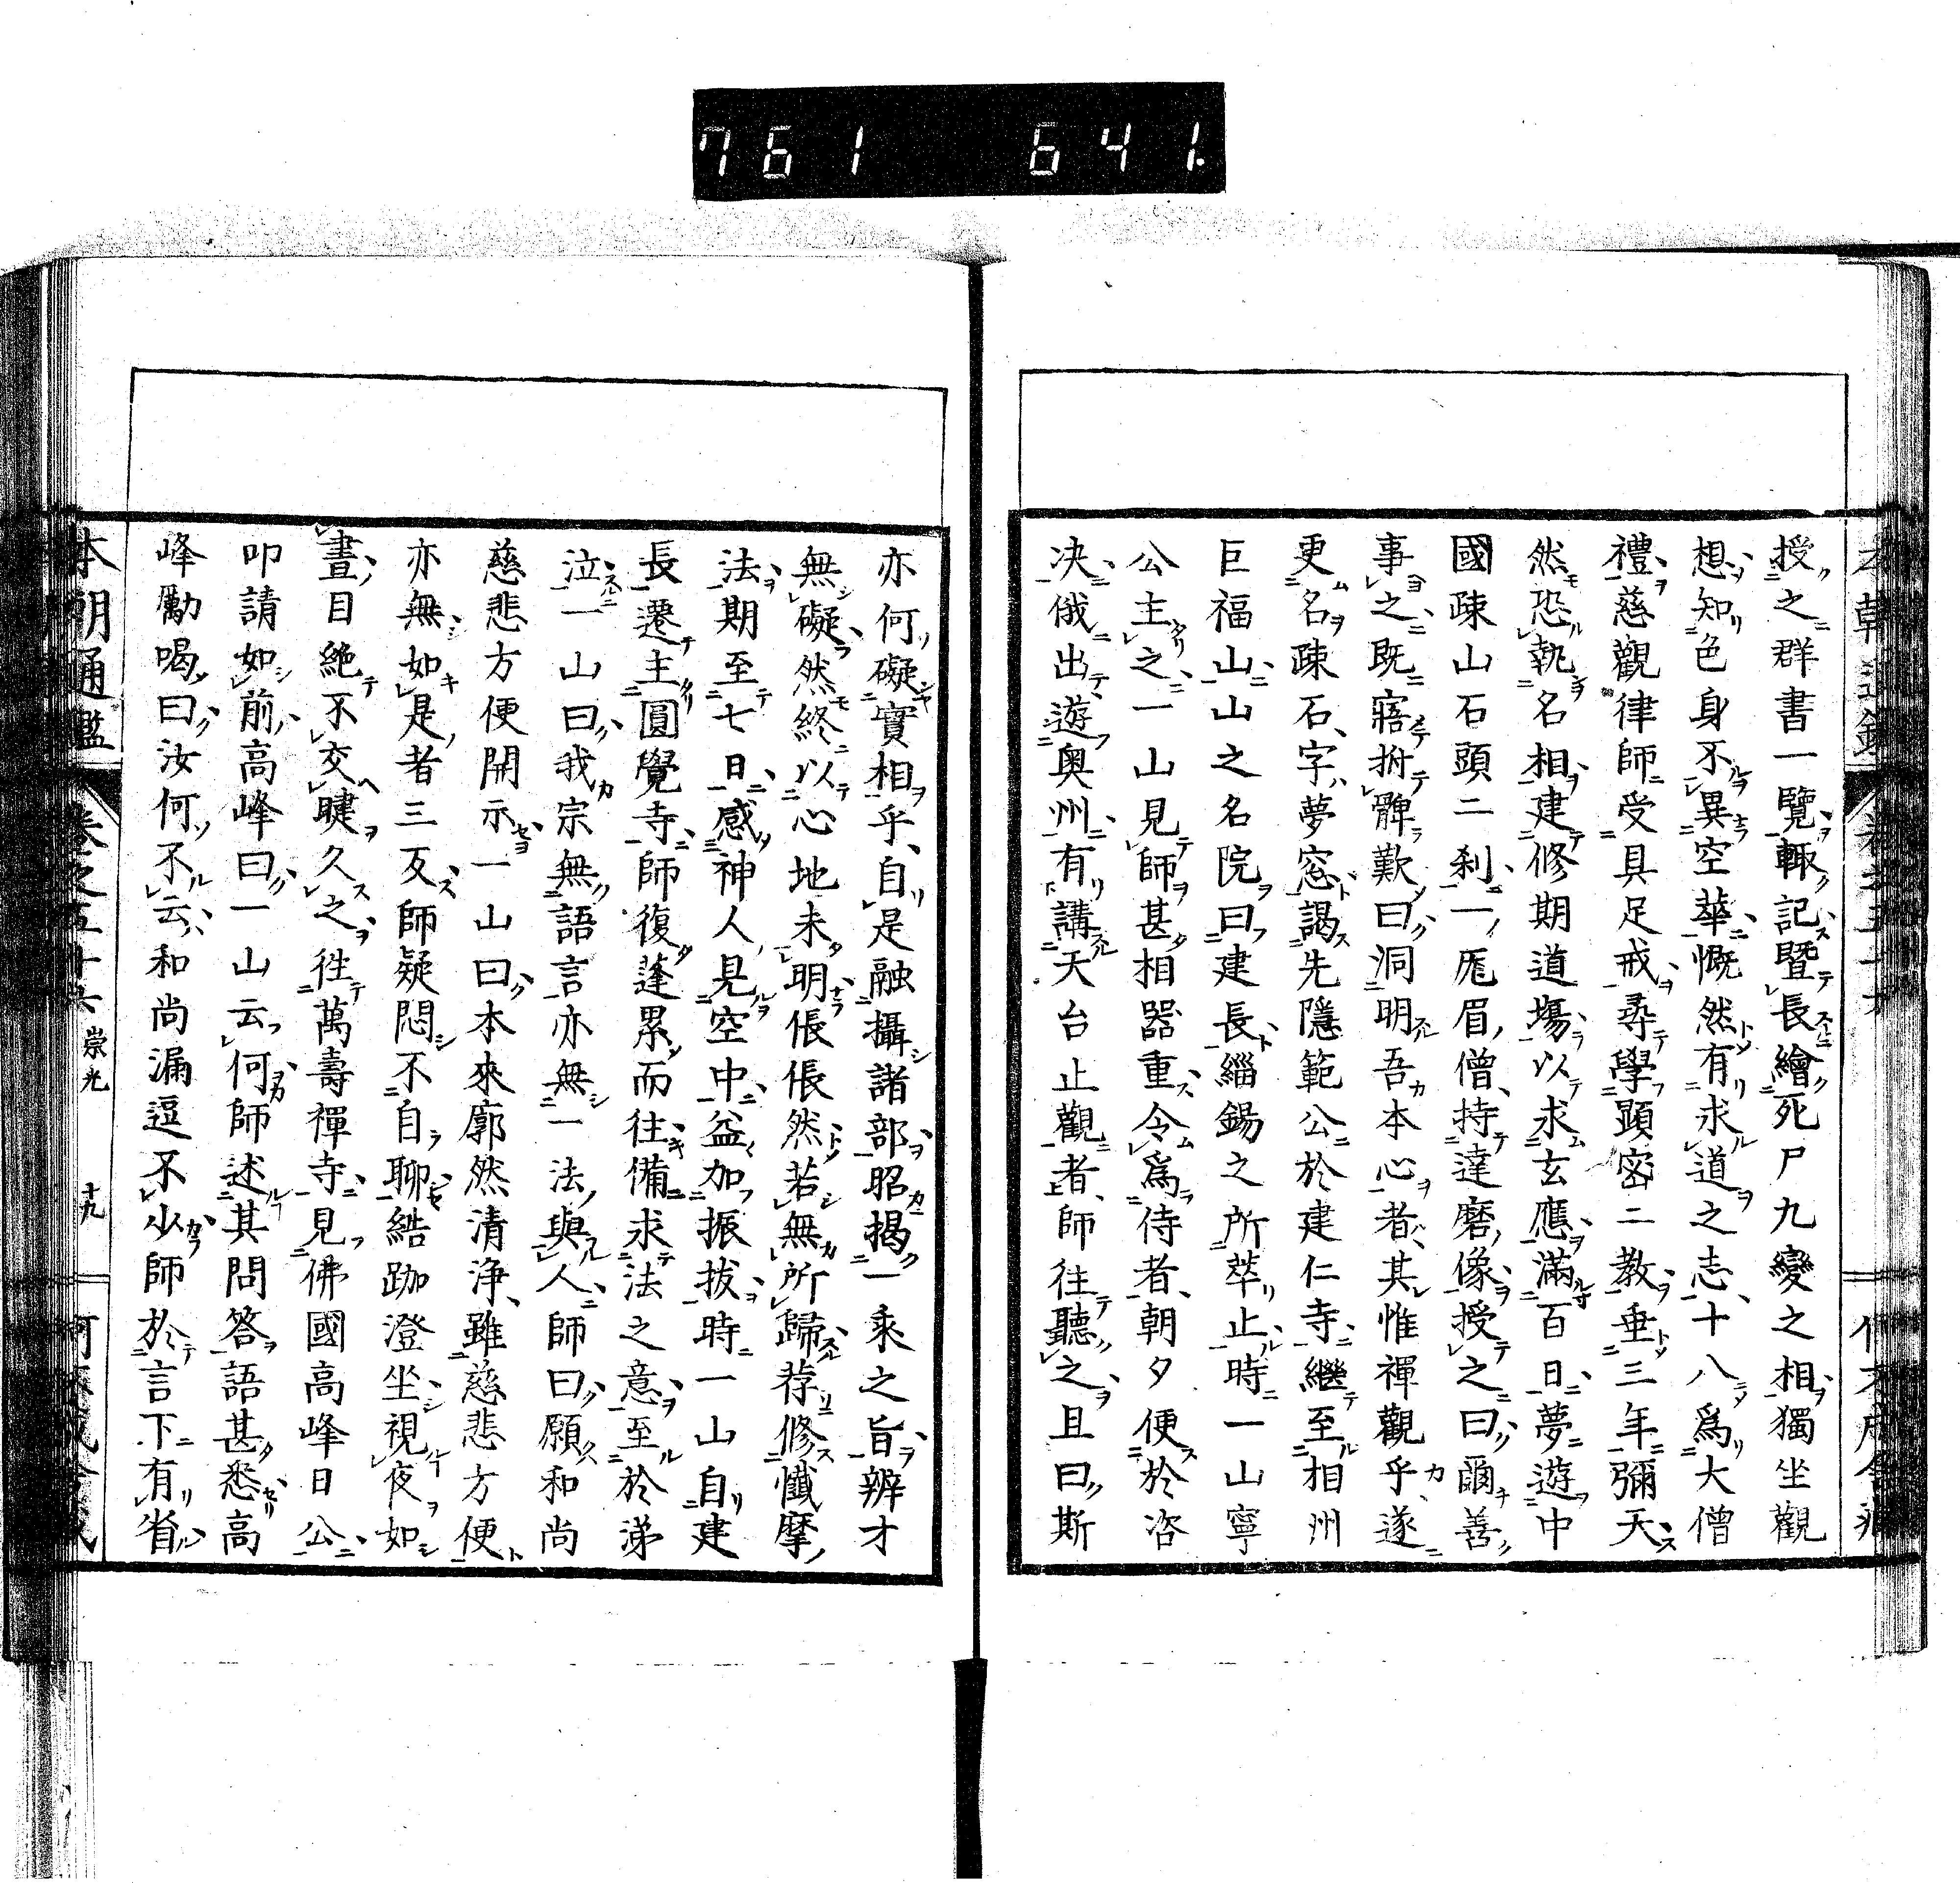 761 641.
授之群書一覽輙記暨長繪死尸九變之相獨坐觀
想知色身不異空華慨然有求道之志十八爲大僧
禮慈觀律師受具足戒尋學顯密二教垂三年彌天
然恐執名相建修期道塲以求玄應滿百日夢遊中
國疎山石頭二刹一厖眉僧持達磨像授之曰爾善
事之既寤拊髀歎曰洞明吾本心者其惟禪觀乎遂
更名疎石字夢窓謁先隱範公於建仁寺繼至相州
巨福山山之名院曰建長緇錫之所萃止時一山寧
公主之一山見師甚相器重令爲侍者朝夕便於咨
决俄出遊奥州有講天台止觀者師往聽之且曰斯
亦何礙實相乎自是融攝諸部昭揭一乘之旨辨才
無礙然終以心地未明倀倀然若無所歸荐修懺摩
法期至七日感神人見空中益加振拔時一山自建
長遷主圓覺寺師復蓬累而往備求法之意至於涕
泣一山曰我宗無語言亦無一法與人師曰願和尚
慈悲方便開示一山曰本來廓然清浄雖慈悲方便
亦無如是者三反師疑悶不自聊結跏澄坐視夜如
晝目絶不交睫久之徃萬壽禪寺見佛國高峰日公
叩請如前高峰曰一山云何師述其問答語甚悉高
峰勵喝曰汝何不云和尚漏逗不少師於言下有省
本朝通鑑 卷之五十六 崇光 十九